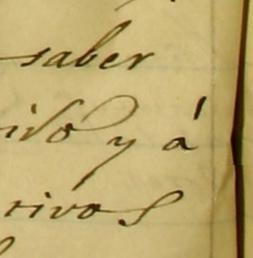 saber
ido y á
civos